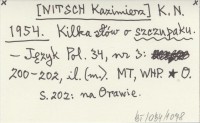 [NITSCH Kazimierz] K. N.
1954. Kilka słów o szczupaku.
— Język Pol. 34, nr 3:
200-202, il. (m). MT, WHP. * O.
S. 202: na Orawie.